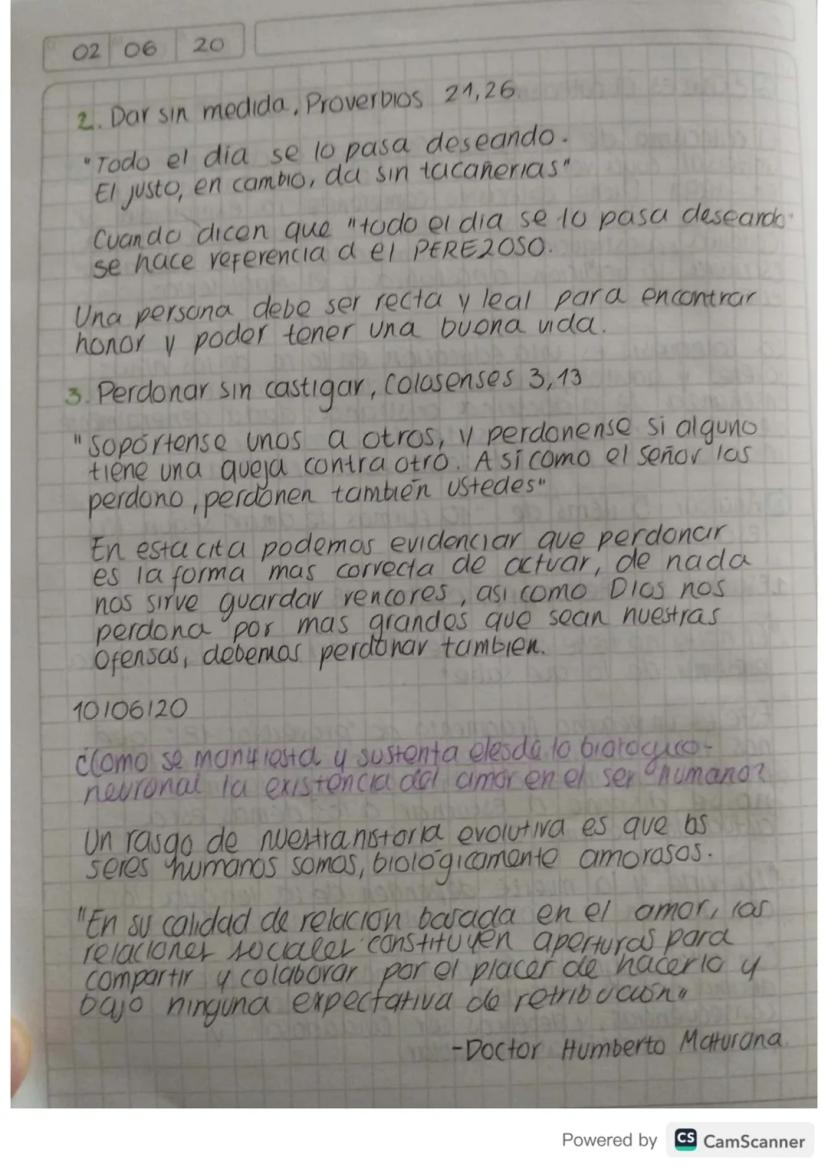 02 06 20
2. Dar sin medida, Proverbios 21,26
"Todo el dia se lo pasa deseando.
El justo, en cambio, da sin tacañerias"
Cuando dicen que "todo el dia se lo pasa deseando"
se hace referencia a el PEREZOSO.
Una persona debe ser recta y leal para encontrar
honor y poder tener una buena vida.
3. Perdonar sin castigar, Colosenses 3,13
"Sopórtense unos a otros, y perdonense si alguno
tiene una queja contra otro. Así como el señor los
perdono, perdonen también ustedes"
En esta cita podemos evidenciar que perdonar
es la forma mas correcta de actuar, de nada
nos sirve guardar rencores, asi como Dios nos
perdona por mas grandes que sean nuestras
ofensas, debemos perdonar tambien.
10/06/20
¿Como se manifiesta y sustenta desde lo biologico-
neuronal la existencia del amor en el ser humano?
Un rasgo de nuestra historia evolutiva es que los
seres humanos somos, biológicamente amorosos.
"En su calidad de relación basada en el amor, las
relaciones sociales constituyen aperturas para
compartir y colaborar por el placer de hacerlo y
bajo ninguna expectativa de retribución"
-Doctor Humberto Maturana.
Powered by CS CamScanner